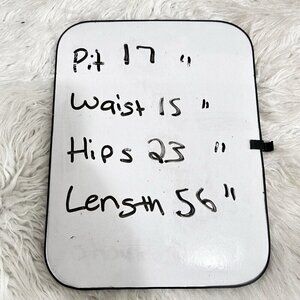 Pit 17 "
Waist 15 "
Hips 23 "
Length 56 "